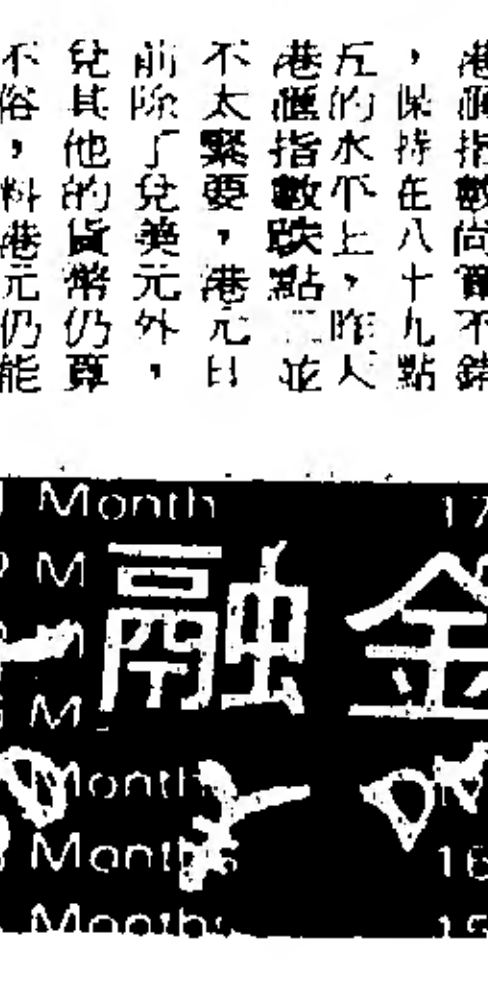 港滙指數尚算不錯
，保持在八十九點
五的水平上，昨人
港滙指數跌點二並
不太緊要，港元日
前除了兌美元外，
兌其他的貨幣仍算
不俗，料港元仍能
金融
Month 17
M
M
Months
Months 16
Months 15